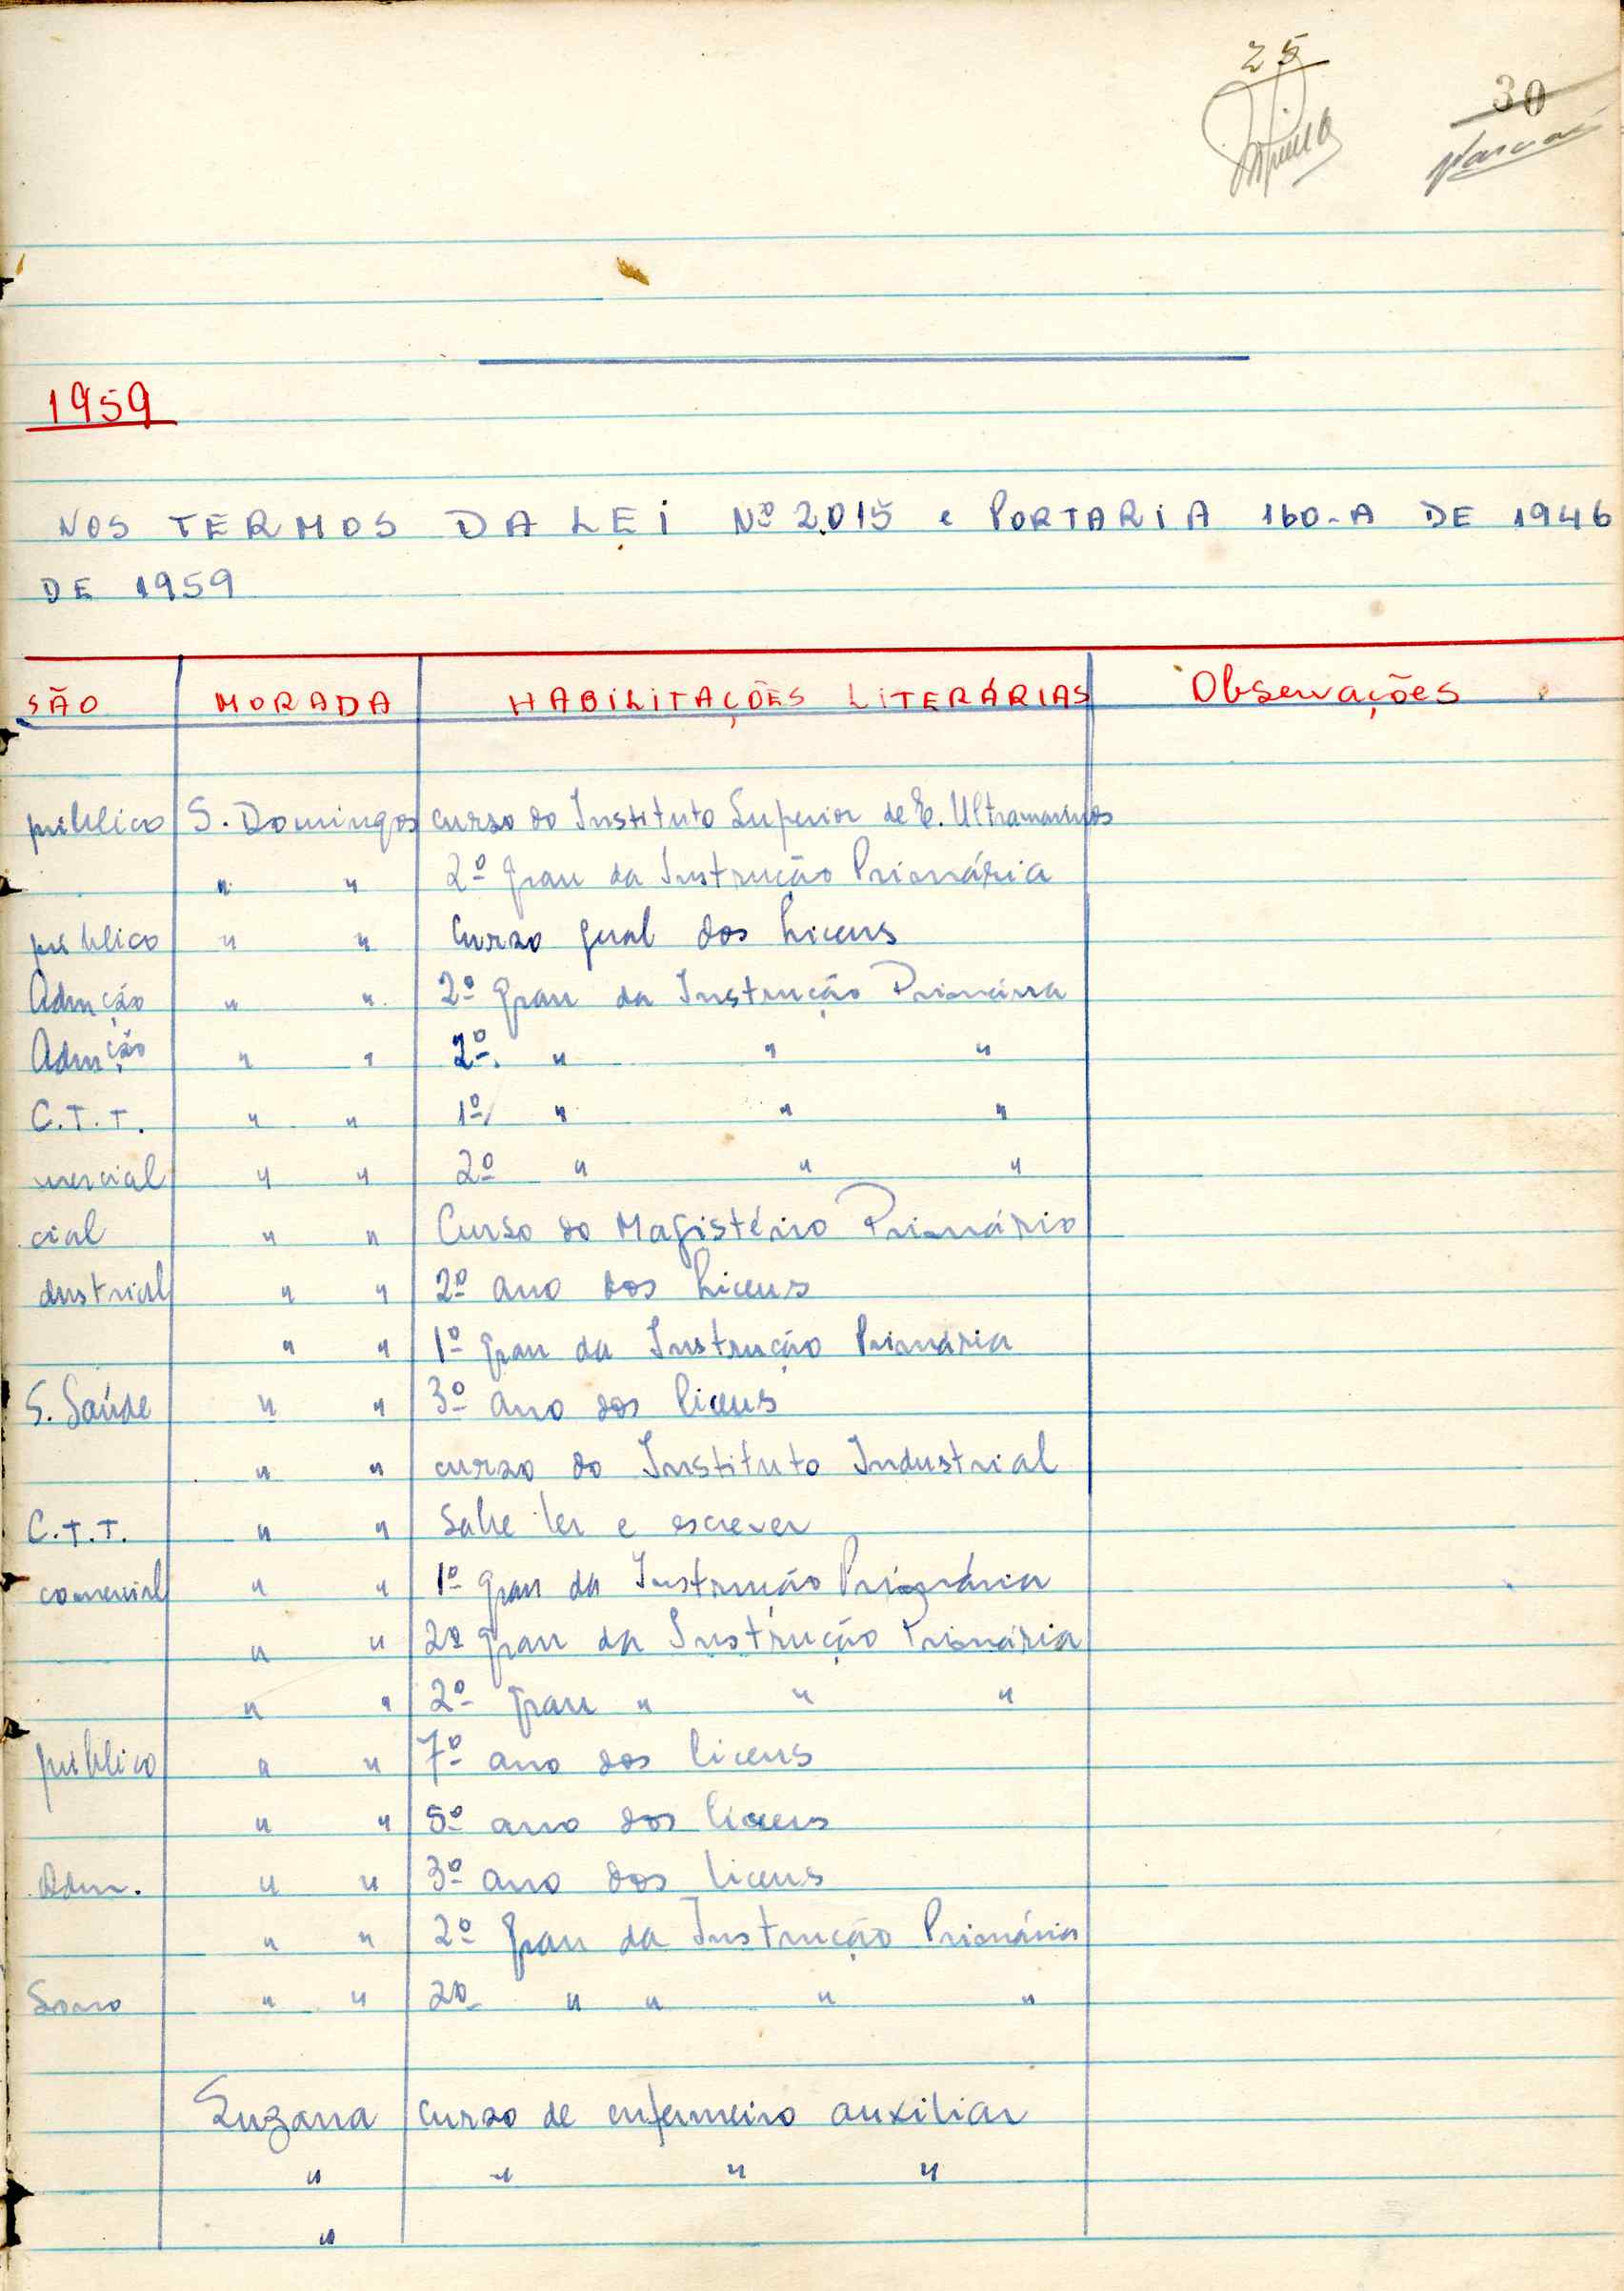 25
30
1959
NOS TERMOS DA LEI Nº 2.015 e PORTARIA 160-A DE 1946
DE 1959
SÃO MORADA HABILITAÇÕES LITERÁRIAS Observações
público S. Domingos curso do Instituto Superior de E. Ultramarinos
" " 2º grau da Instrução Primária
público " " Curso geral dos liceus
Admção " " 2º grau da Instrução Primária
Admção " " 2º. " " "
C.T.T. " " 1º " " "
mercial " " 2º " " "
cial " " Curso do Magistério Primário
dustrial " " 2º ano dos liceus
" " 1º grau da Instrução Primária
S. Saúde " " 3º ano dos liceus
" " curso do Instituto Industrial
C.T.T. " " Sabe ler e escrever
comercial " " 1º grau da Instrução Primária
" " 2º grau da Instrução Primária
" " 2º grau " " "
público " " 7º ano dos liceus
" " 5º ano dos liceus
Adm. " " 3º ano dos liceus
" " 2º grau da Instrução Primária
" " 2º " " " "
Suzana curso de enfermeiro auxiliar
" " " "
"